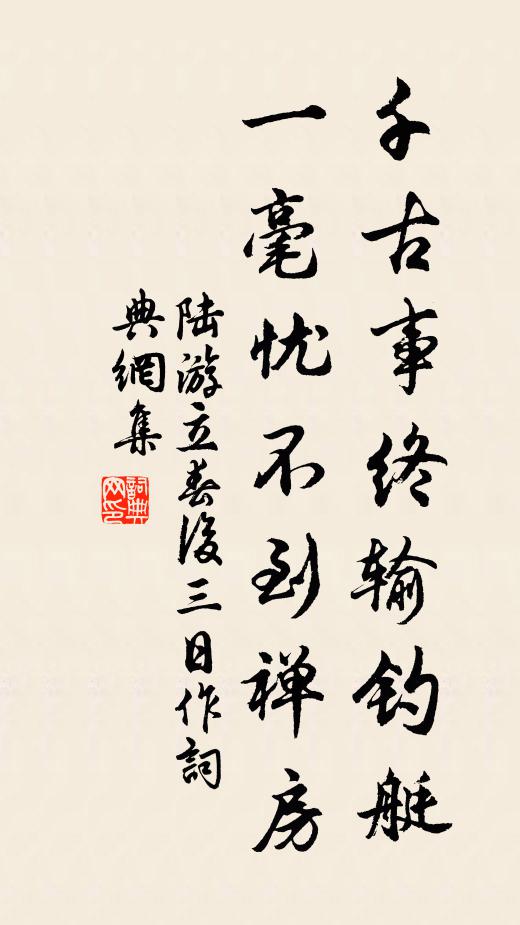 千古事终输钓艇
一毫忧不到禅房
陆游立春後三日作詞
典網集
詞典网印